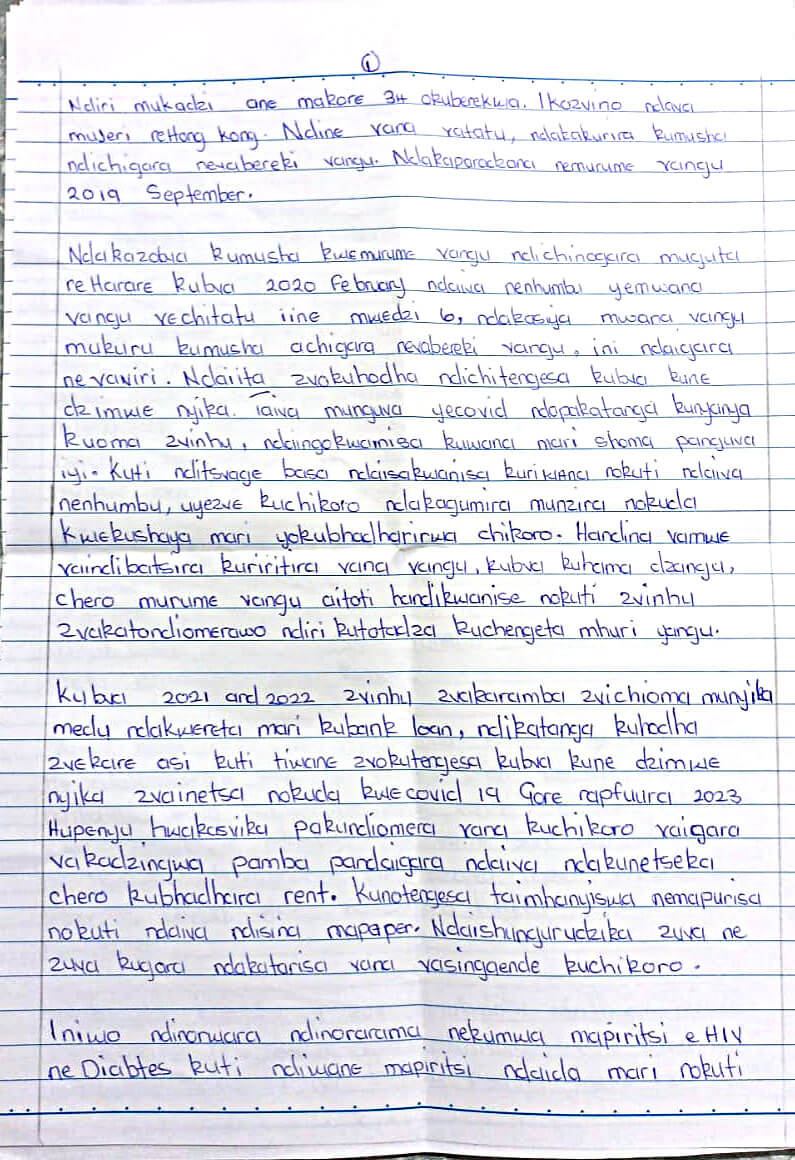 1
Ndiri mukadzi ane makore 34 okuberekwa. Ikozvino ndava
mujeri reHong Kong. Ndine vana vatatu, ndakakurira kumusha
ndichigara nevabereki vangu. Ndakaparackana nemurume vangu
2019 September.
Ndakazobva kumusha kwemurume vangu ndichinogara muguta
reHarare kubva 2020 February ndaiva nenhumbu yemwana
vangu vechitatu iine mwedzi 6, ndakasiya mwana vangu
mukuru kumusha achigara nevabereki vangu, ini ndaigara
nevaviri. Ndaiita zvokuhodha ndichitengesa kubva kune
dzimwe nyika. Iaiva munguva yecovid ndopakatanga kunyanya
kuoma zvinhu, ndaingokwanisa kuwana mari shoma panguva
iyi. Kuti nditsvage basa ndaisakwanisa kuriwana nokuti ndaiva
nenhumbu, uyezve kuchikoro ndakagumira munzira nokuda
kwekushaya mari yokubhadharirwa chikoro. Handina vamwe
vaindibatsira kuriritira vana vangu, kubva kuhama dzangu,
chero murume vangu aitoti handikwanise nokuti zvinhu
zvakatondiomerawo ndiri kutotadza kuchengeta mhuri yangu.
Kubva 2021 and 2022 zvinhu zvakaramba zvichioma munyika
medu ndakwereta mari kubank loan, ndikatanga kuhodha
zvekare asi kuti tiwane zvokutengesa kubva kune dzimwe
nyika zvainetsa nokuda kwecovid 19 Gore rapfuura 2023
Hupenyu hwakasvika pakundiomera vana kuchikoro vaigara
vakadzingwa, pamba pandaigara ndaiva ndakunetseka
chero kubhadhara rent. Kunotengesa taimhanyiswa nemapurisa
nokuti ndaiva ndisina mapaper. Ndaishungurudzika zuva ne
zuva kugara ndakatarisa vana vasingaende kuchikoro.
Iniwo ndinorwara ndinorarama nekumwa mapiritsi eHIV
ne Diabtes kuti ndiwane mapiritsi ndaida mari nokuti